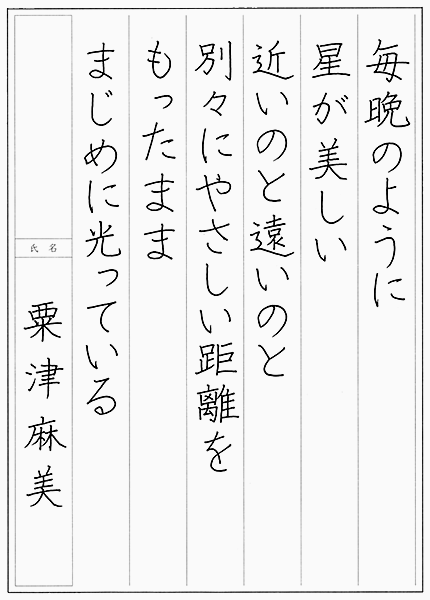 毎晩のように
星が美しい
近いのと遠いのと
別々にやさしい距離を
もったまま
まじめに光っている
氏名
粟津麻美